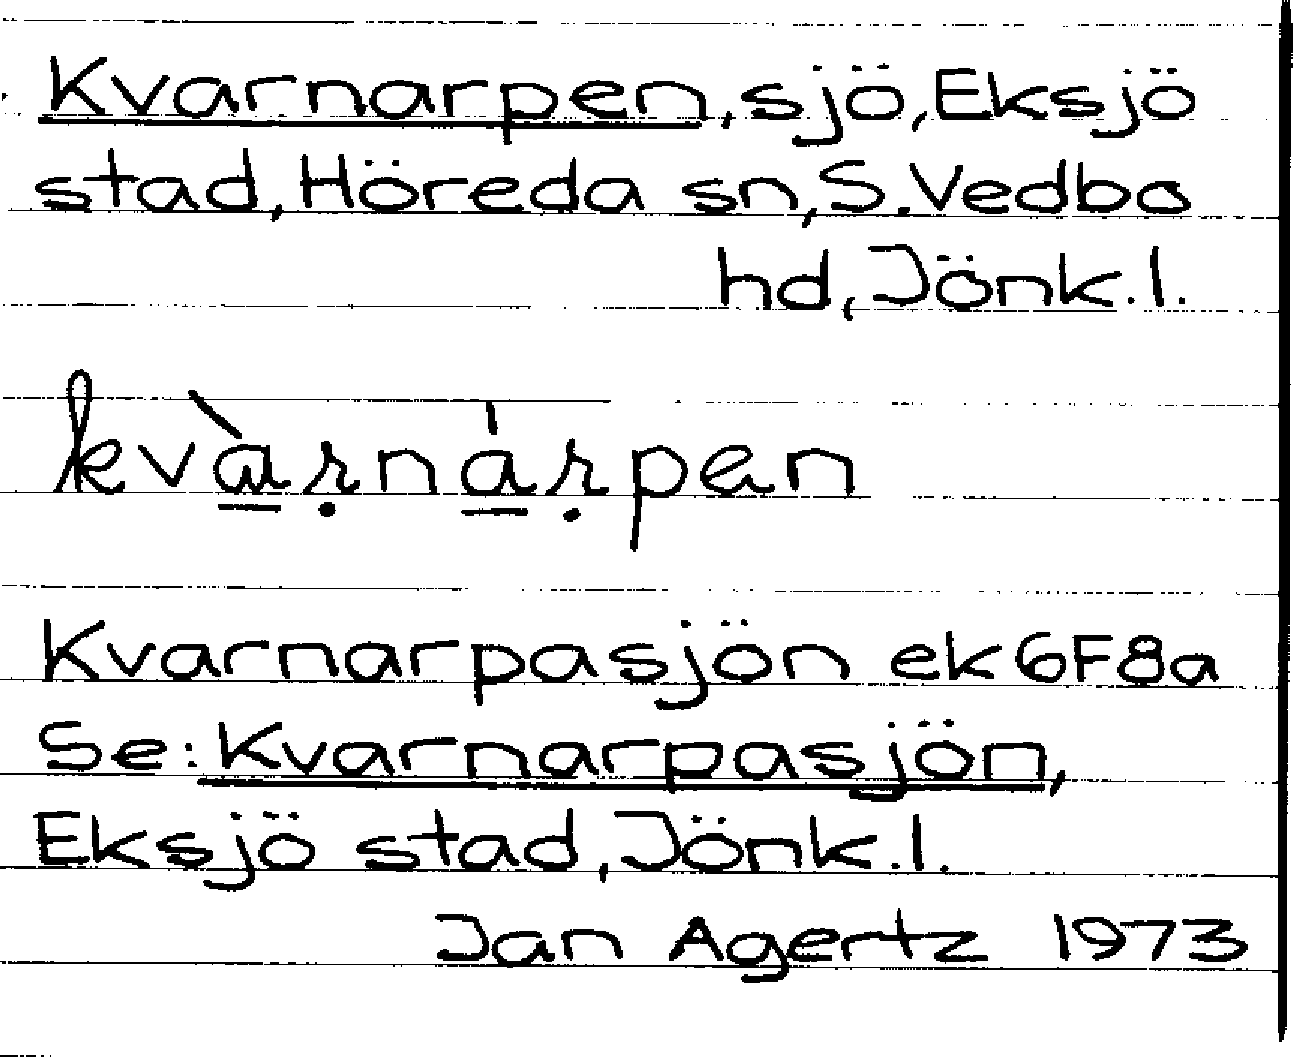 Kvarnarpen, sjö, Eksjö
stad, Höreda sn, S. Vedbo
hd, Jönk. l.
kvà̱ṛná̱ṛpen
Kvarnarpasjön ek 6F8a
Se: Kvarnarpasjön,
Eksjö stad, Jönk. l.
Jan Agertz 1973